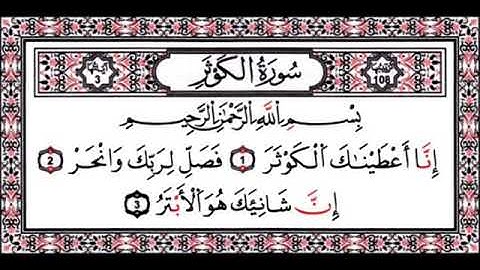 سُورَةُ الْكَوْثَرِ
108
3
بِسْمِ اللَّهِ الرَّحْمَٰنِ الرَّحِيمِ
إِنَّا أَعْطَيْنَاكَ الْكَوْثَرَ 1 فَصَلِّ لِرَبِّكَ وَانْحَرْ 2
إِنَّ شَانِئَكَ هُوَ الْأَبْتَرُ 3